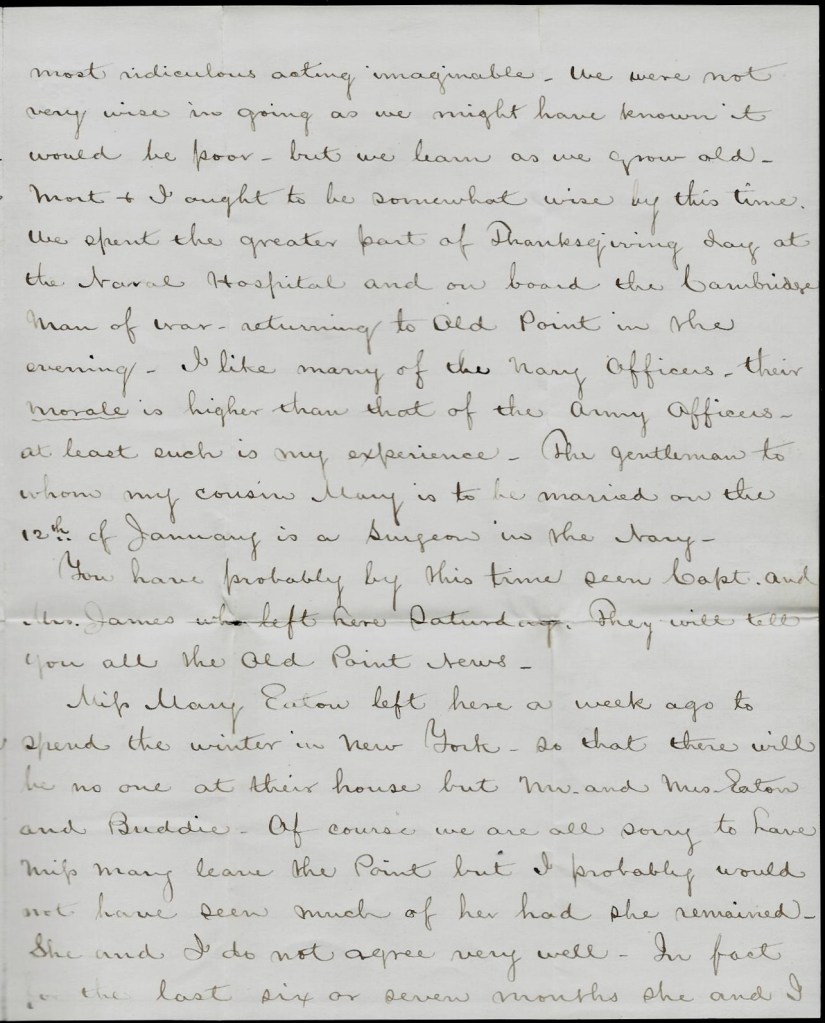 most ridiculous acting imaginable - We were not
very wise in going as we might have known it
would be poor - but we learn as we grow old -
Mort & I ought to be somewhat wise by this time.
We spent the greater part of Thanksgiving day at
the Naval Hospital and on board the Cambridge
Man of war - returning to Old Point in the
evening - I like many of the Navy Officers - their
morale is higher than that of the Army Officers -
at least such is my experience - The gentleman to
whom my cousin Mary is to be married on the
12th of January is a Surgeon in the Navy -
You have probably by this time seen Capt. and
Mrs. James who left here Saturday. They will tell
you all the Old Point News -
Miss Mary Eaton left here a week ago to
spend the winter in New York - so that there will
be no one at their house but Mr. and Mrs. Eaton
and Buddie - Of course we are all sorry to have
Miss Mary leave the Point but I probably would
not have seen much of her had she remained -
She and I do not agree very well - In fact
for the last six or seven months she and I